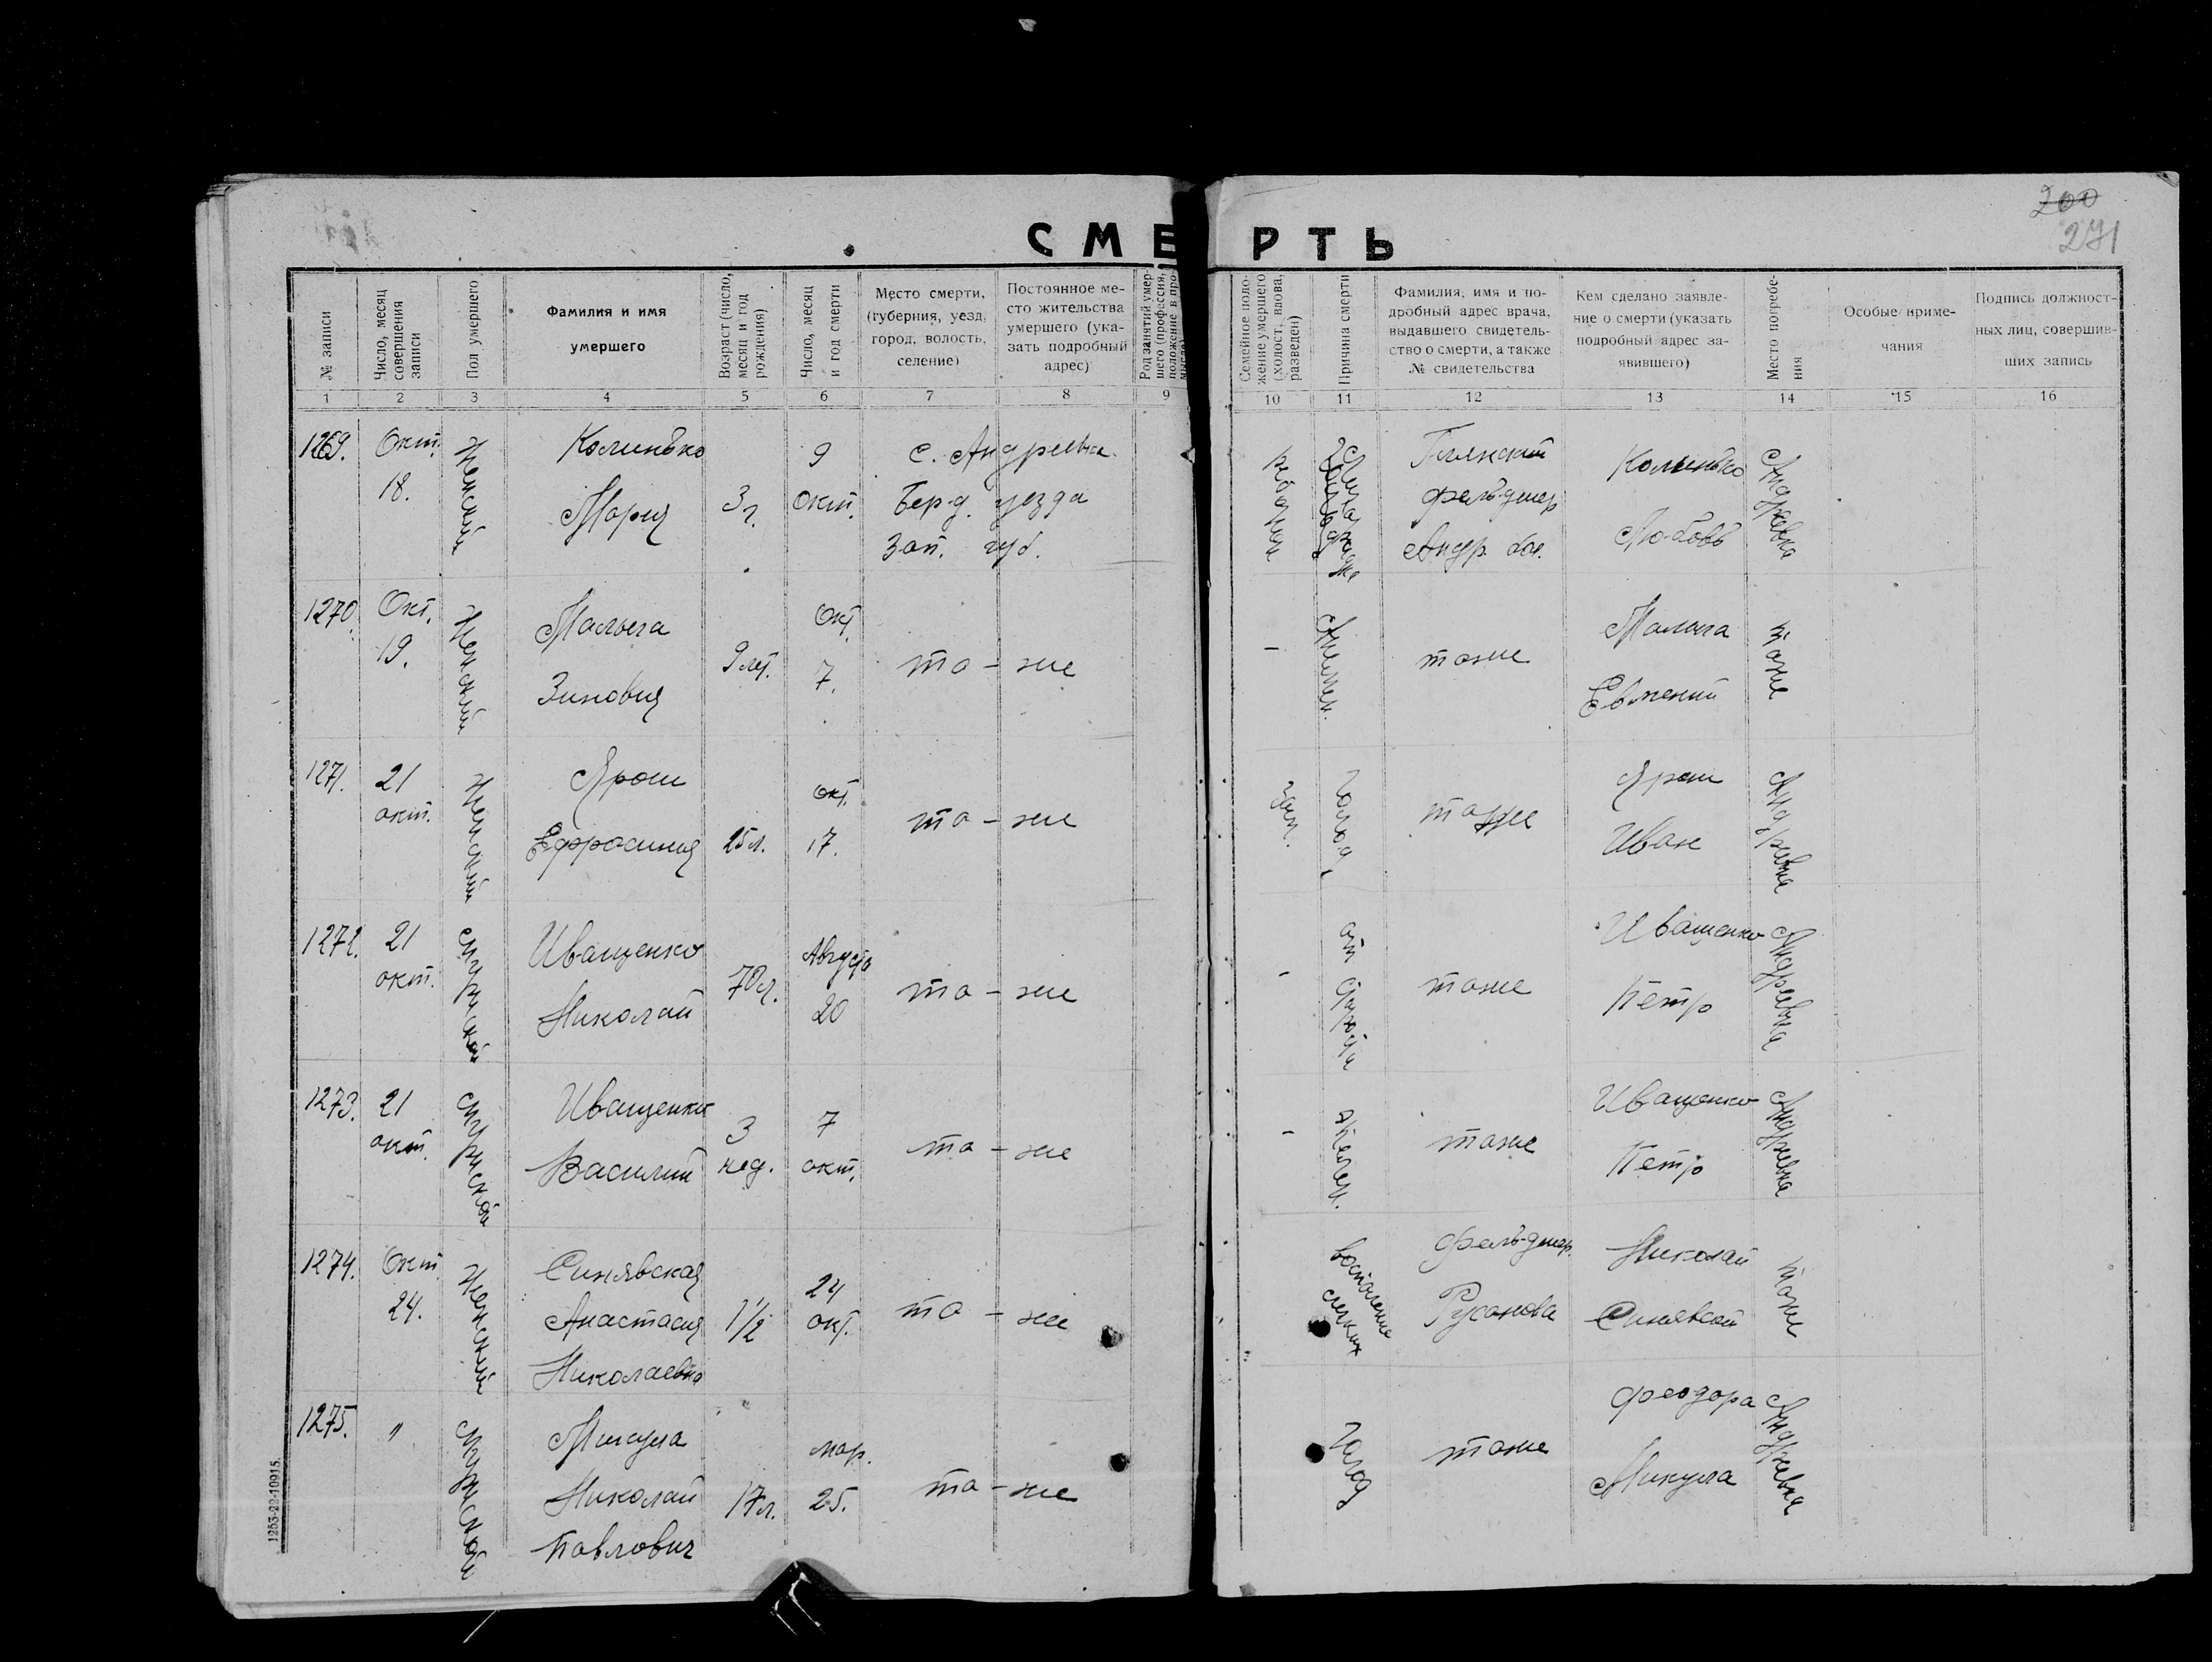 200
271
СМЕРТЬ
№ записи
Число, месяц совершения записи
Пол умершего
Фамилия и имя умершего
Возраст (число, месяц и год рождения)
Число, месяц и год смерти
Место смерти, (губерния, уезд, город, волость, селение)
Постоянное место жительства умершего (указать подробный адрес)
Род занятий умершего (профессия, положение в про-
Семейное положение умершего (холост, вдова, разведен)
Причина смерти
Фамилия, имя и подробный адрес врача, выдавшего свидетельство о смерти, а также № свидетельства
Кем сделано заявление о смерти (указать подробный адрес заявившего)
Место погребения
Особые примечания
Подпись должностных лиц, совершивших запись
1 2 3 4 5 6 7 8 9 10 11 12 13 14 15 16
1269. Окт. 18. Женский
Колинько
Мария
3 г.
9 окт.
с. Андреевка
Берд. уезда
Зап. губ.
фельдшер
Андр. бол.
Колинько
Любовь
Андреевка
1270. Окт. 19. Женский
Малыга
Зиновия
9 лет.
Окт. 7.
то-же
-
тоже
Малыга
Евмений
тоже
1271. 21 окт. Женский
Ярош
Ефросиния
25 л.
окт. 17.
то-же
Зам.
Голод
тоже
Ярош
Иван
Андреевка
1272. 21 окт. Мужской
Иващенко
Николай
70 л.
Августа 20
то-же
-
от
тоже
Иващенко
Петр
Андреевка
1273. 21 окт. Мужской
Иващенко
Василий
3 нед.
7 окт.
то-же
-
тоже
Иващенко
Петр
Андреевка
1274. Окт. 24. Женский
Синявская
Анастасия
Николаевна
1 1/2
24 окт.
то-же
Воспаление легких
фельдшер.
Русанова
Николай
Синявский
тоже
1275. " Мужской
Микула
Николай
Павлович
17 л.
мар. 25.
то-же
Голод
тоже
Феодора
Микула
Андреевка
1253-22-10915.